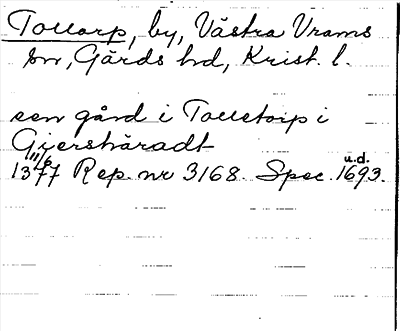 Tollarp, by, Västra Vrams
sn, Gärds hd, Krist. l.
een gård i Tolletorp i
Giershäradt
11/6 u.d.
1377 Rep. nr 3168. Spec. 1693.